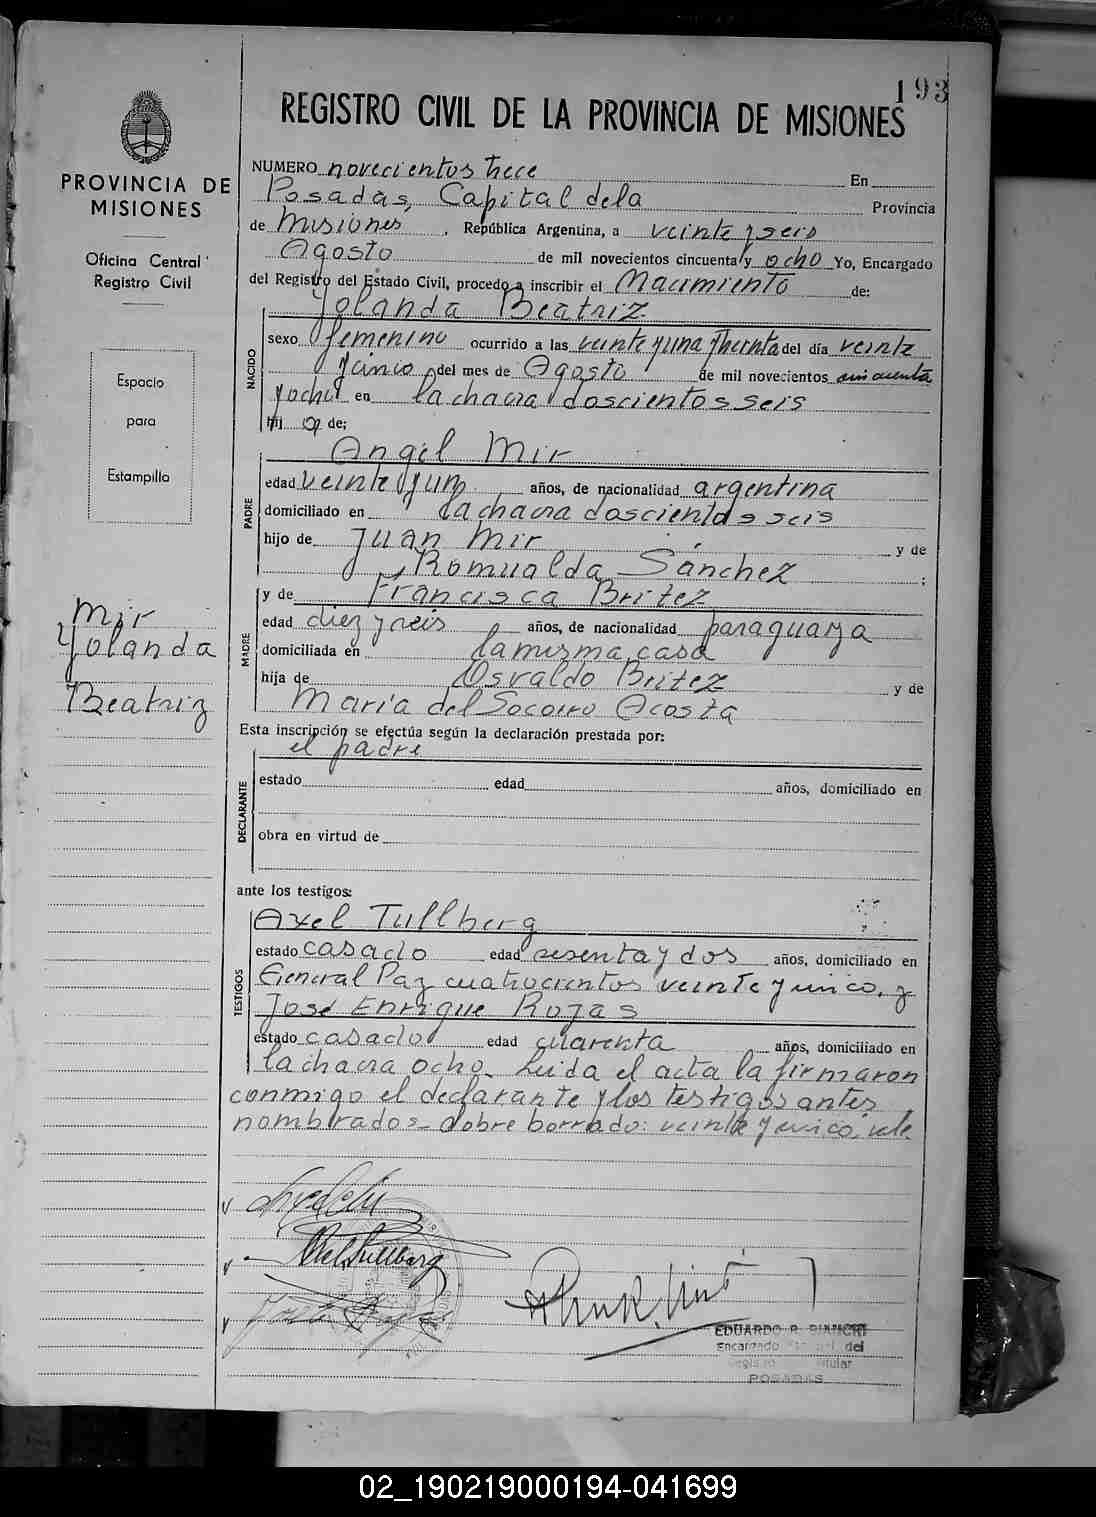 193
REGISTRO CIVIL DE LA PROVINCIA DE MISIONES
PROVINCIA DE
MISIONES
Oficina Central
Registro Civil
Espacio
para
Estampilla
Mir
Yolanda
Beatriz
NUMERO novecientos trece En
Posadas, Capital de la Provincia
de Misiones, República Argentina, a veinte y seis
Agosto de mil novecientos cincuenta y ocho Yo, Encargado
del Registro del Estado Civil, procedo a inscribir el Nacimiento de:
Yolanda Beatriz
NACIDO
sexo femenino ocurrido a las veinte y una y treinta del día veinte
y cinco del mes de Agosto de mil novecientos cincuenta
y ocho en la chacra doscientos seis
hij a de;
Angel Mir
PADRE
edad veinte y un años, de nacionalidad argentina
domiciliado en la chacra doscientos seis
hijo de Juan Mir y de
Romualda Sánchez ;
y de Francisca Britez
MADRE
edad diez y seis años, de nacionalidad paraguaya
domiciliada en la misma casa
hija de Osvaldo Britez y de
María del Socorro Acosta
Esta inscripción se efectúa según la declaración prestada por:
el padre
DECLARANTE
estado edad años, domiciliado en
obra en virtud de
ante los testigos:
Axel Tullberg
TESTIGOS
estado casado edad sesenta y dos años, domiciliado en
General Paz cuatrocientos veinte y cinco, y
José Enrique Rojas
estado casado edad cuarenta años, domiciliado en
la chacra ocho. Leida el acta la firmaron
conmigo el declarante y los testigos antes
nombrados. Sobre borrado: veinte y cinco, vale.
Axel Tullberg
EDUARDO R. BIANCHI
Encargado del
POSADAS
02_190219000194-041699